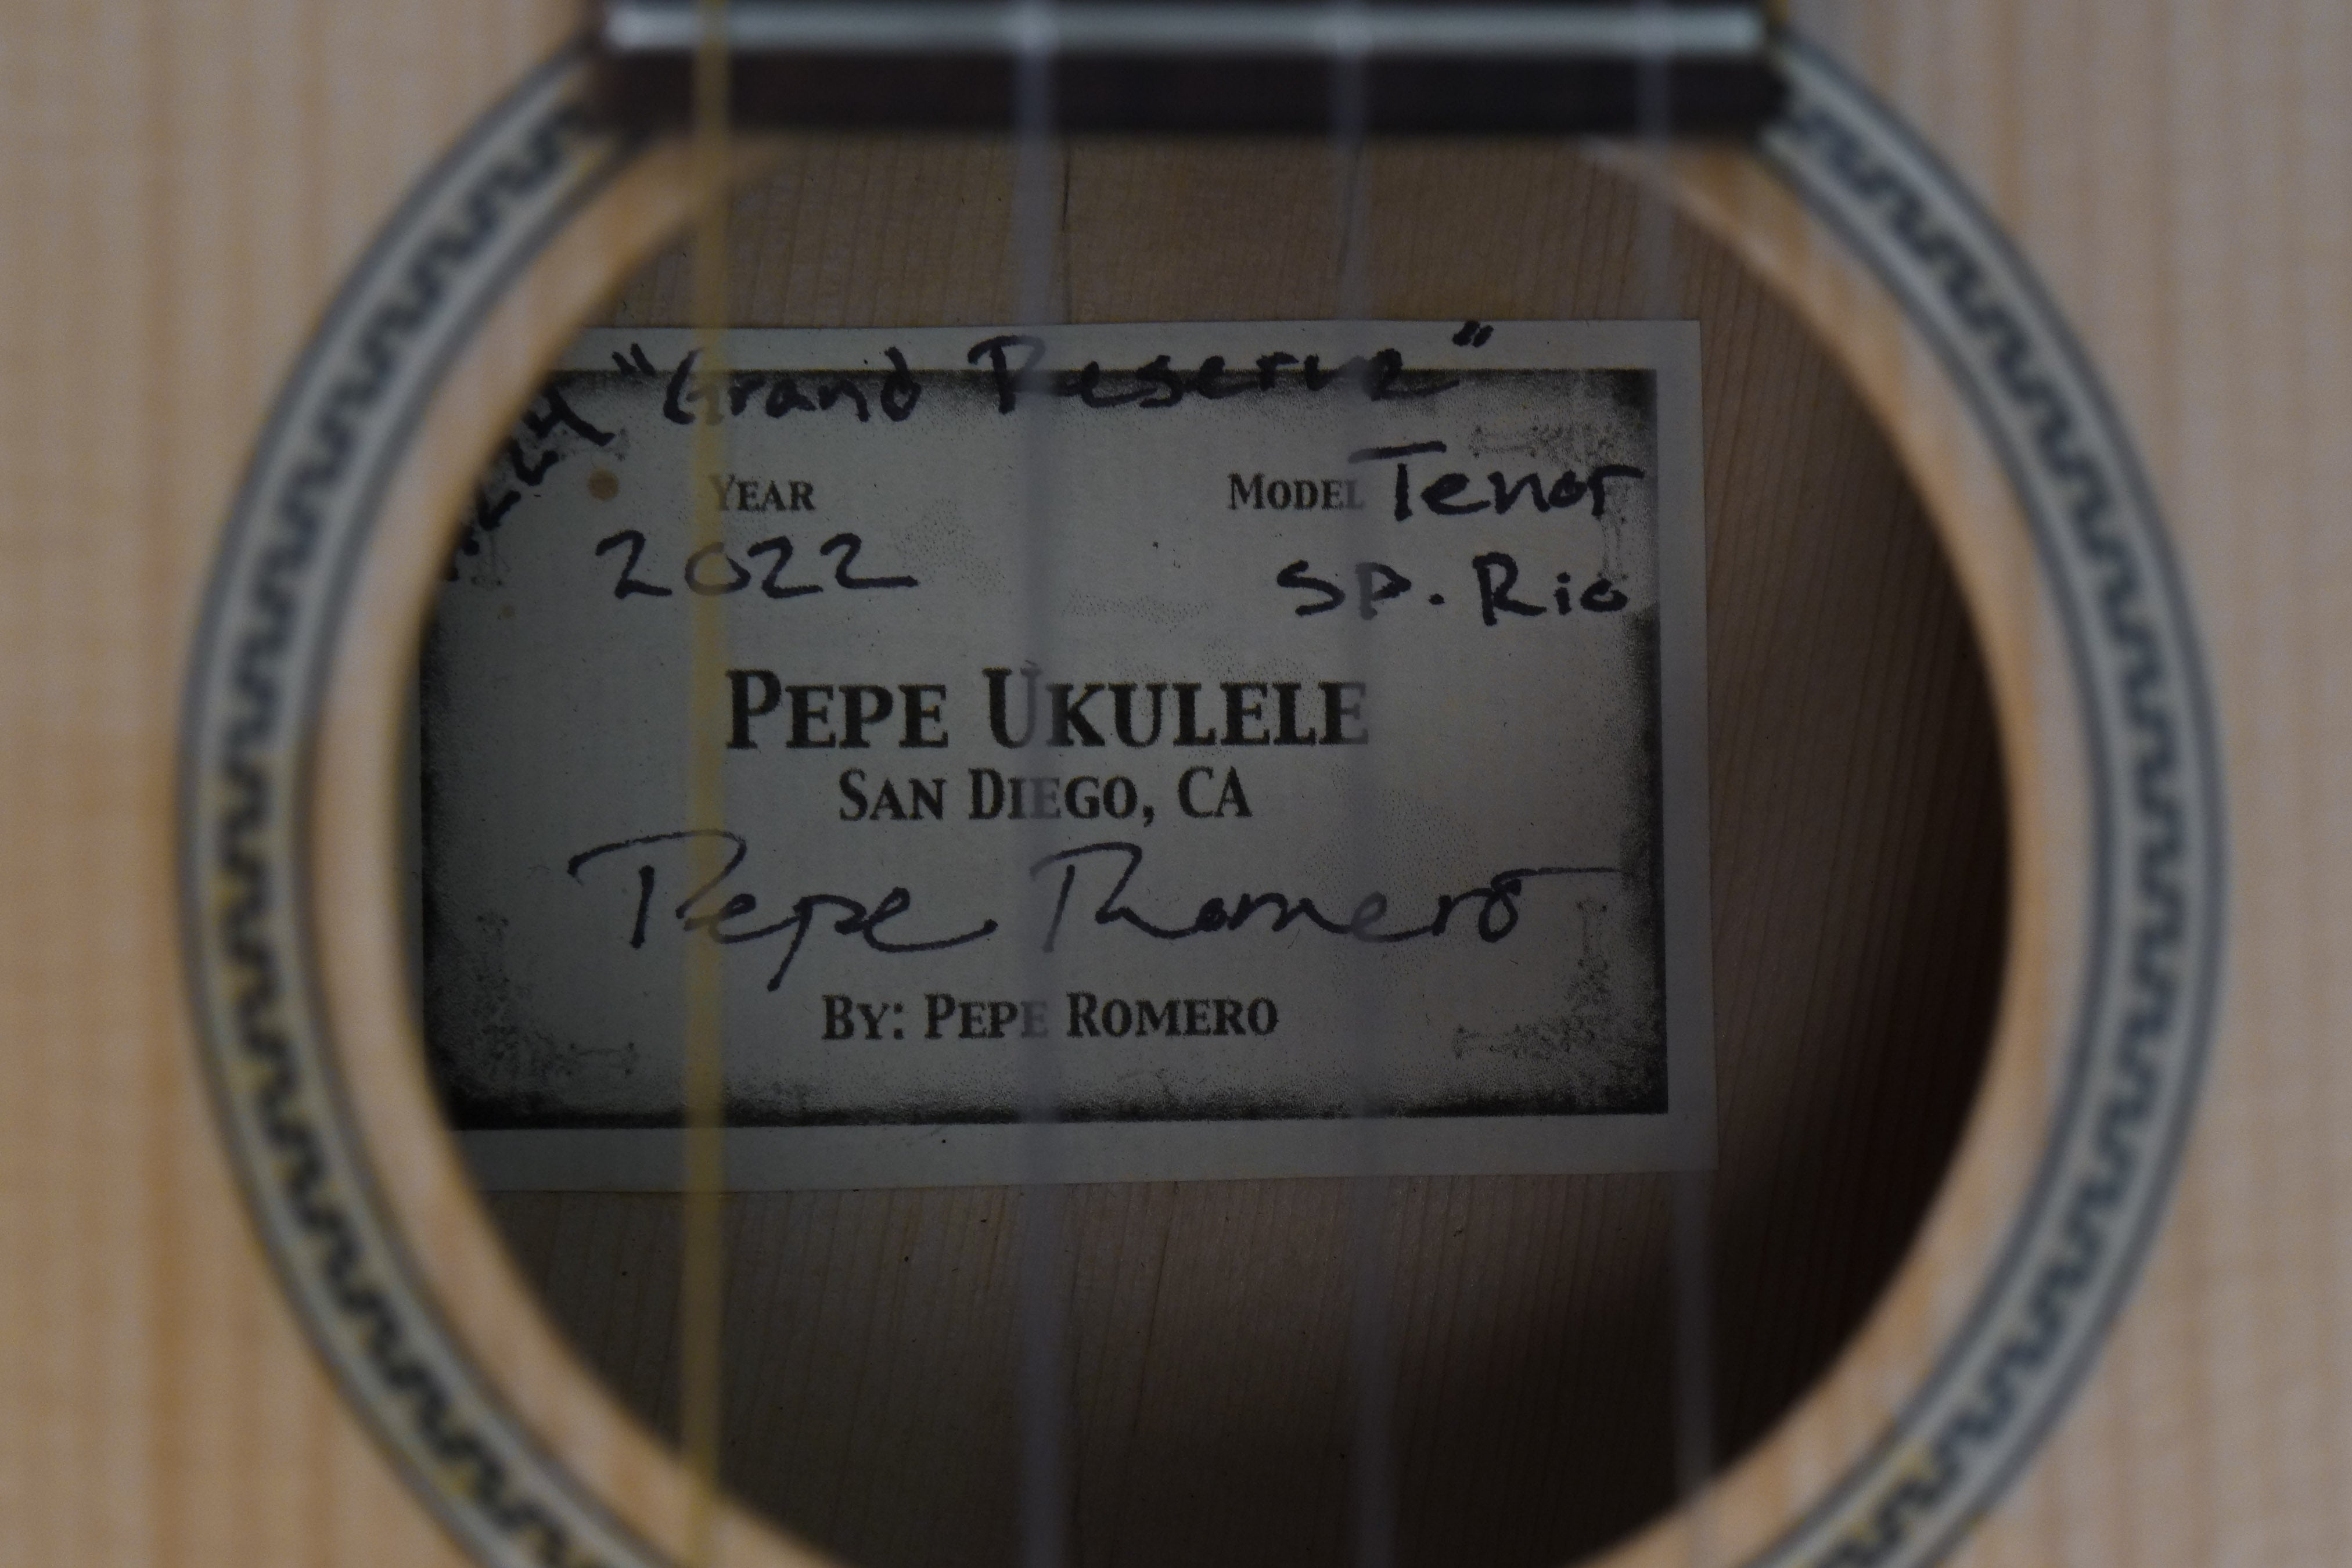 "Grand Reserve"
YEAR MODEL Tenor
2022 SP. Rio
PEPE UKULELE
SAN DIEGO, CA
Pepe Romero
BY: PEPE ROMERO